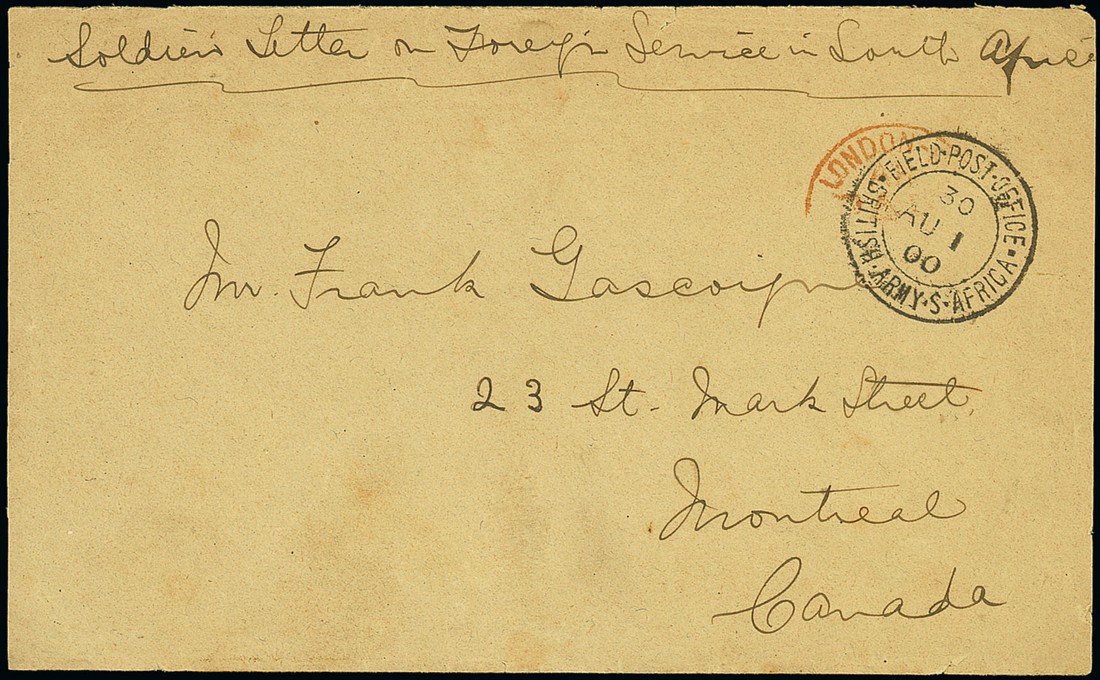 Soldier's Letter on Foreign Service in South Africa
LONDON
BRITISH · FIELD · POST · OFFICE · ARMY · S · AFRICA ·
30
AU 1
00
Mr. Frank Gascoigne
23 St. Mark Street,
Montreal
Canada